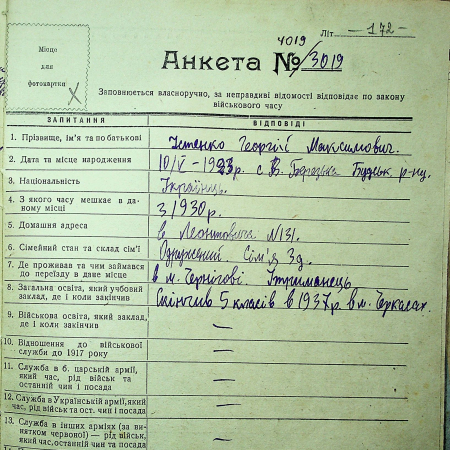 Літ —172—
Місце
для
фотокартки
4019
Анкета № 3019
Заповнюється власноручно, за неправдиві відомості відповідає по закону
військового часу
ЗАПИТАННЯ ВІДПОВІДІ
1. Прізвище, ім'я та по батькові Георгій Максимович.
2. Дата та місце народження 10/V - 1923р. с В. Березька р-ну.
3. Національність Українець.
4. З якого часу мешкає в даному місці
з 1930 р.
5. Домашня адреса Леонтовича N 131.
6. Сімейний стан та склад сім'ї Одружений. Сім'я 3 д.
7. Де проживав та чим займався
до переїзду в дане місце в м. Чернігові Утриманець
8. Загальна освіта, який учбовий
заклад, де і коли закінчив Скінчив 5 класів в 1937 р. в м. Черкасах.
9. Військова освіта, який заклад,
де і коли закінчив —
10. Відношення до військової
служби до 1917 року —
11. Служба в б. царській армії,
який час, рід військ та
останній чин і посада —
12. Служба в Українській армії, який
час, рід військ та ост. чин і посада —
13. Служба в інших арміях (за ви-
нятком червоної) — рід військ,
який час, останній чин та посада —